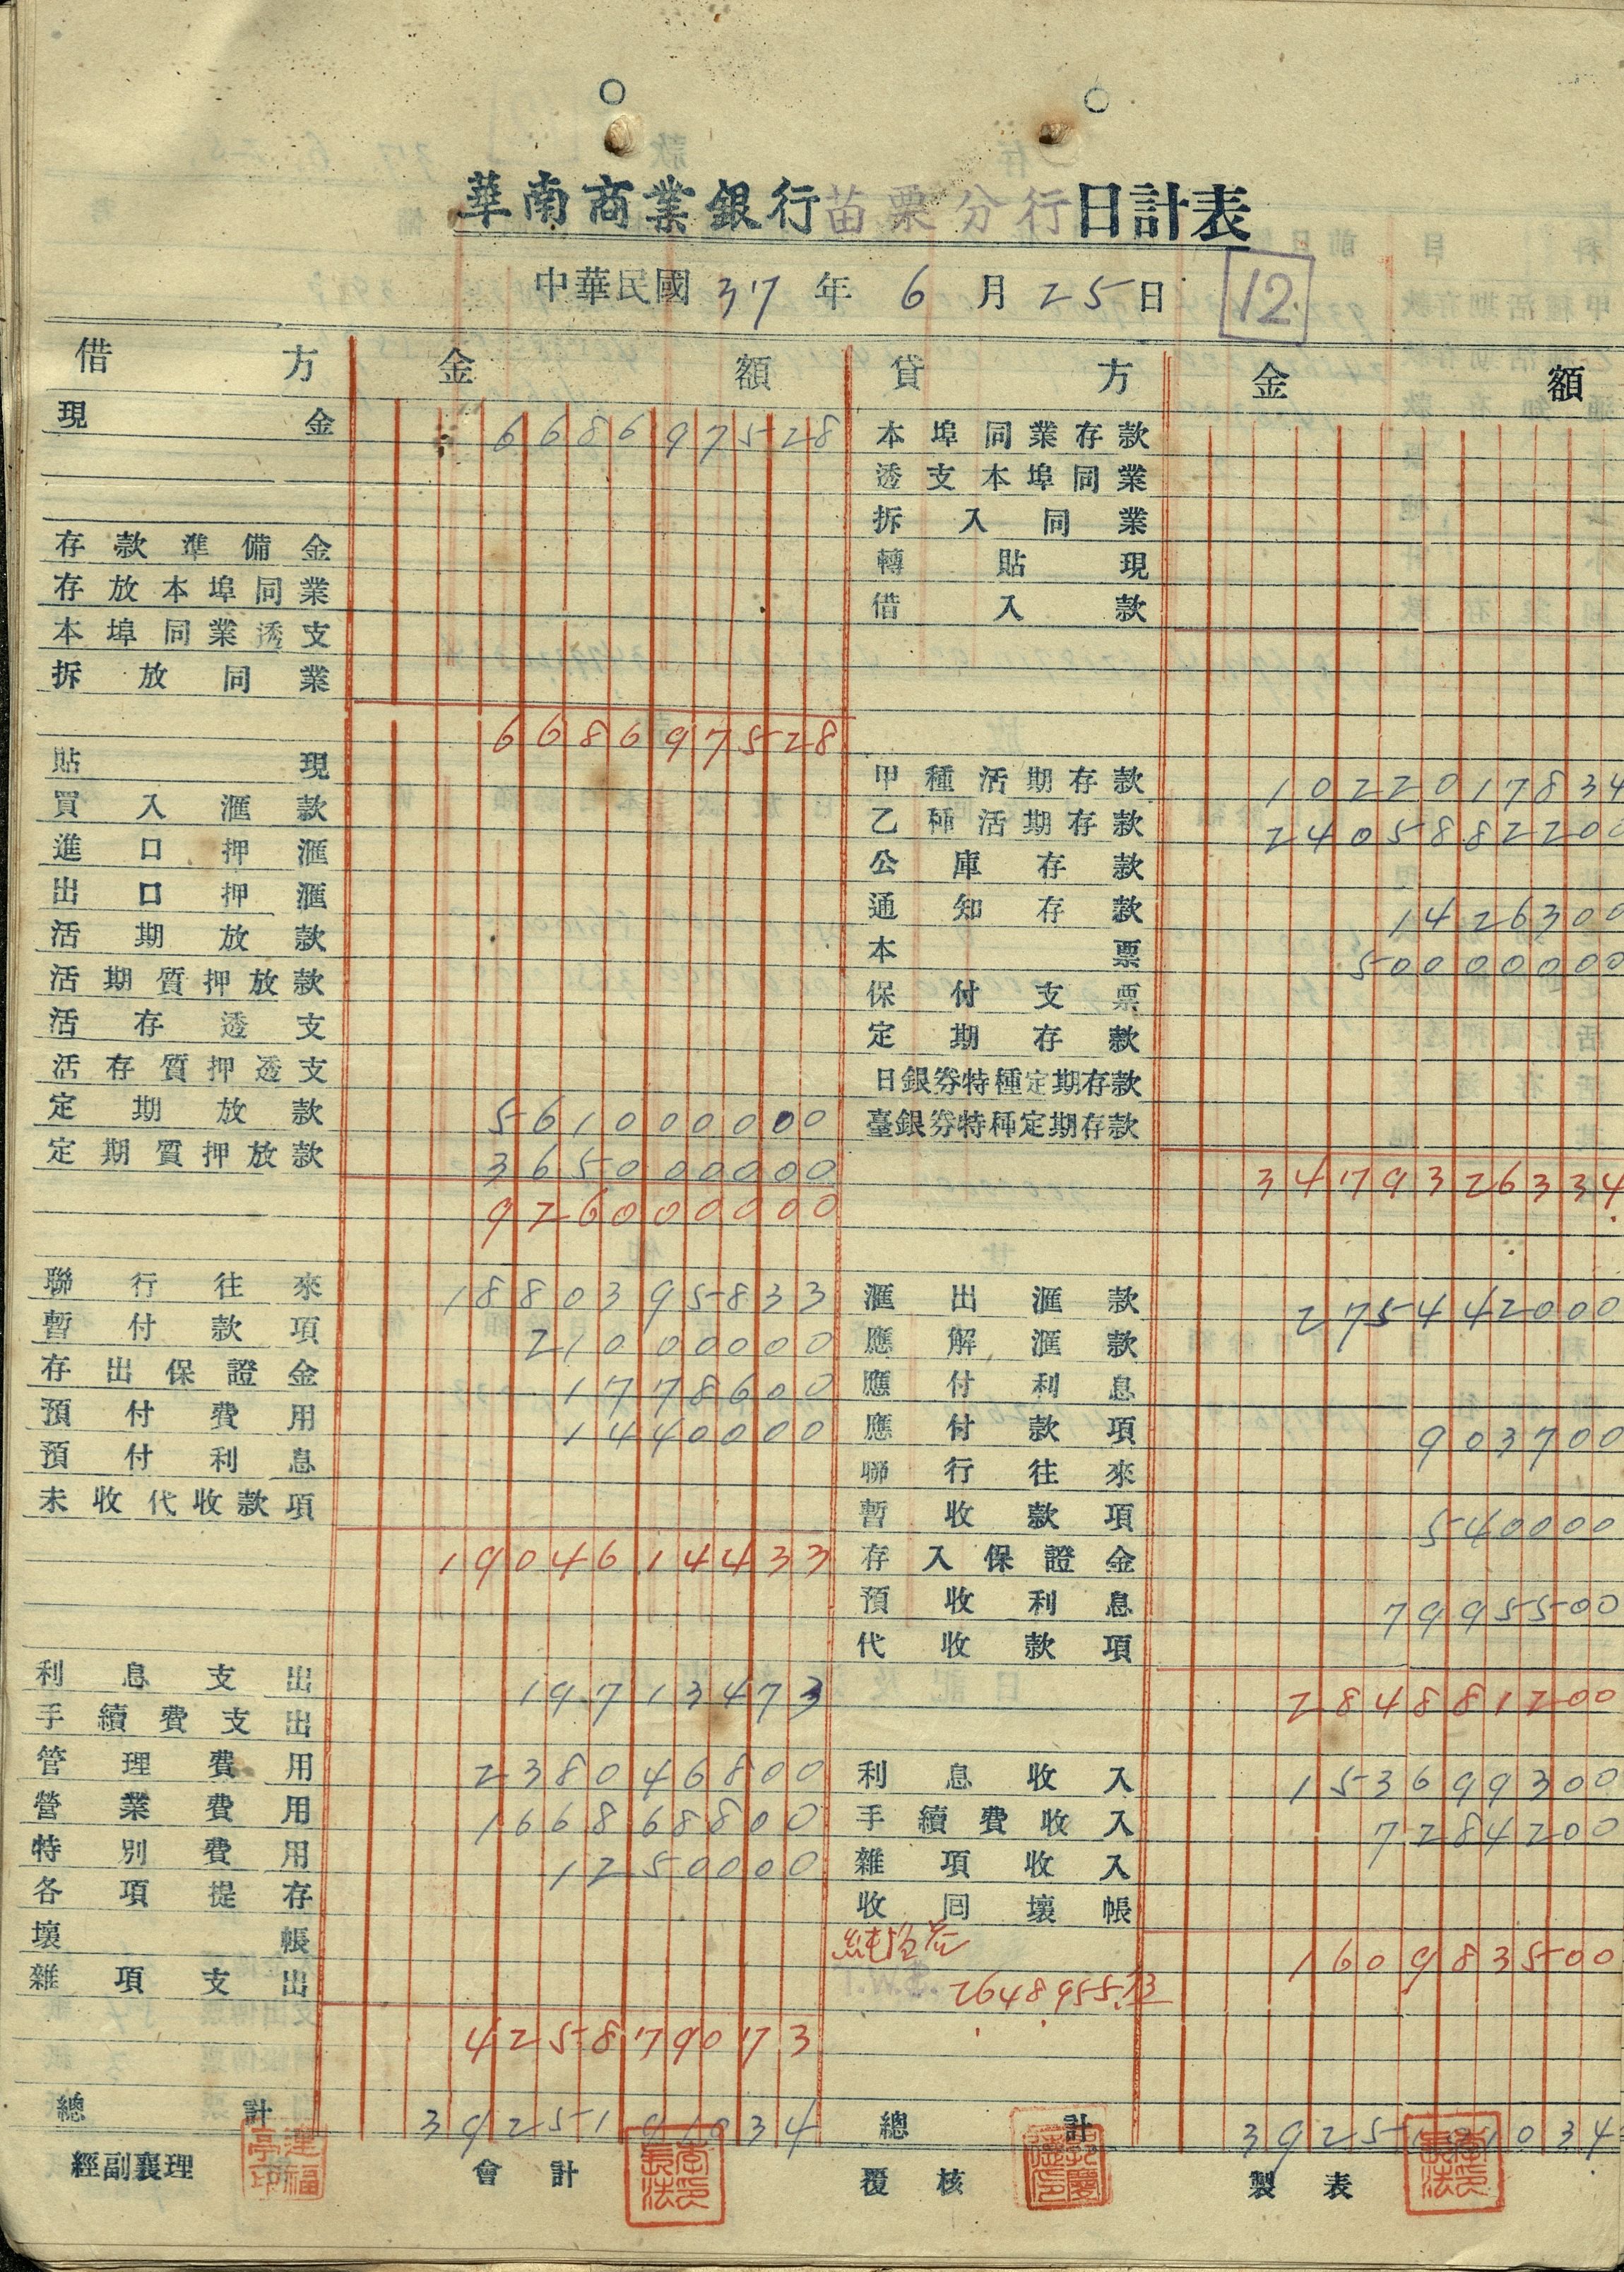 華南商業銀行苗栗分行日計表
中華民國 37 年 6 月 25 日 12
借方 金額 貸方 金額
現金 668697528
存款準備金
存放本埠同業
本埠同業透支
拆放同業
668697528
貼現
買入滙款
進口押滙
出口押滙
活期放款
活期質押放款
活存透支
活存質押透支
定期放款 561000000
定期質押放款 365000000
926000000
聯行往來 1880395833
暫付款項 21000000
存出保證金 1778600
預付費用 1440000
預付利息
未收代收款項
1904614433
利息支出 19713473
手續費支出
管理費用 238046800
營業費用 166868800
特別費用 1250000
各項提存
壞帳
雜項支出
425879073
總計 3925191034
本埠同業存款
透支本埠同業
拆入同業
轉貼現
借入款
甲種活期存款 1022017834
乙種活期存款 2405882200
公庫存款
通知存款 1426300
本票 50000000
保付支票
定期存款
日銀券特種定期存款
臺銀券特種定期存款
3479326334
滙出滙款 275442000
應解滙款
應付利息
應付款項 903700
聯行往來
暫收款項 540000
存入保證金
預收利息 7995500
代收款項
284881200
利息收入 153699300
手續費收入 7284200
雜項收入
收回壞帳
160983500
2648955.73
總計 3925191034
經副襄理 會計 覆核 製表